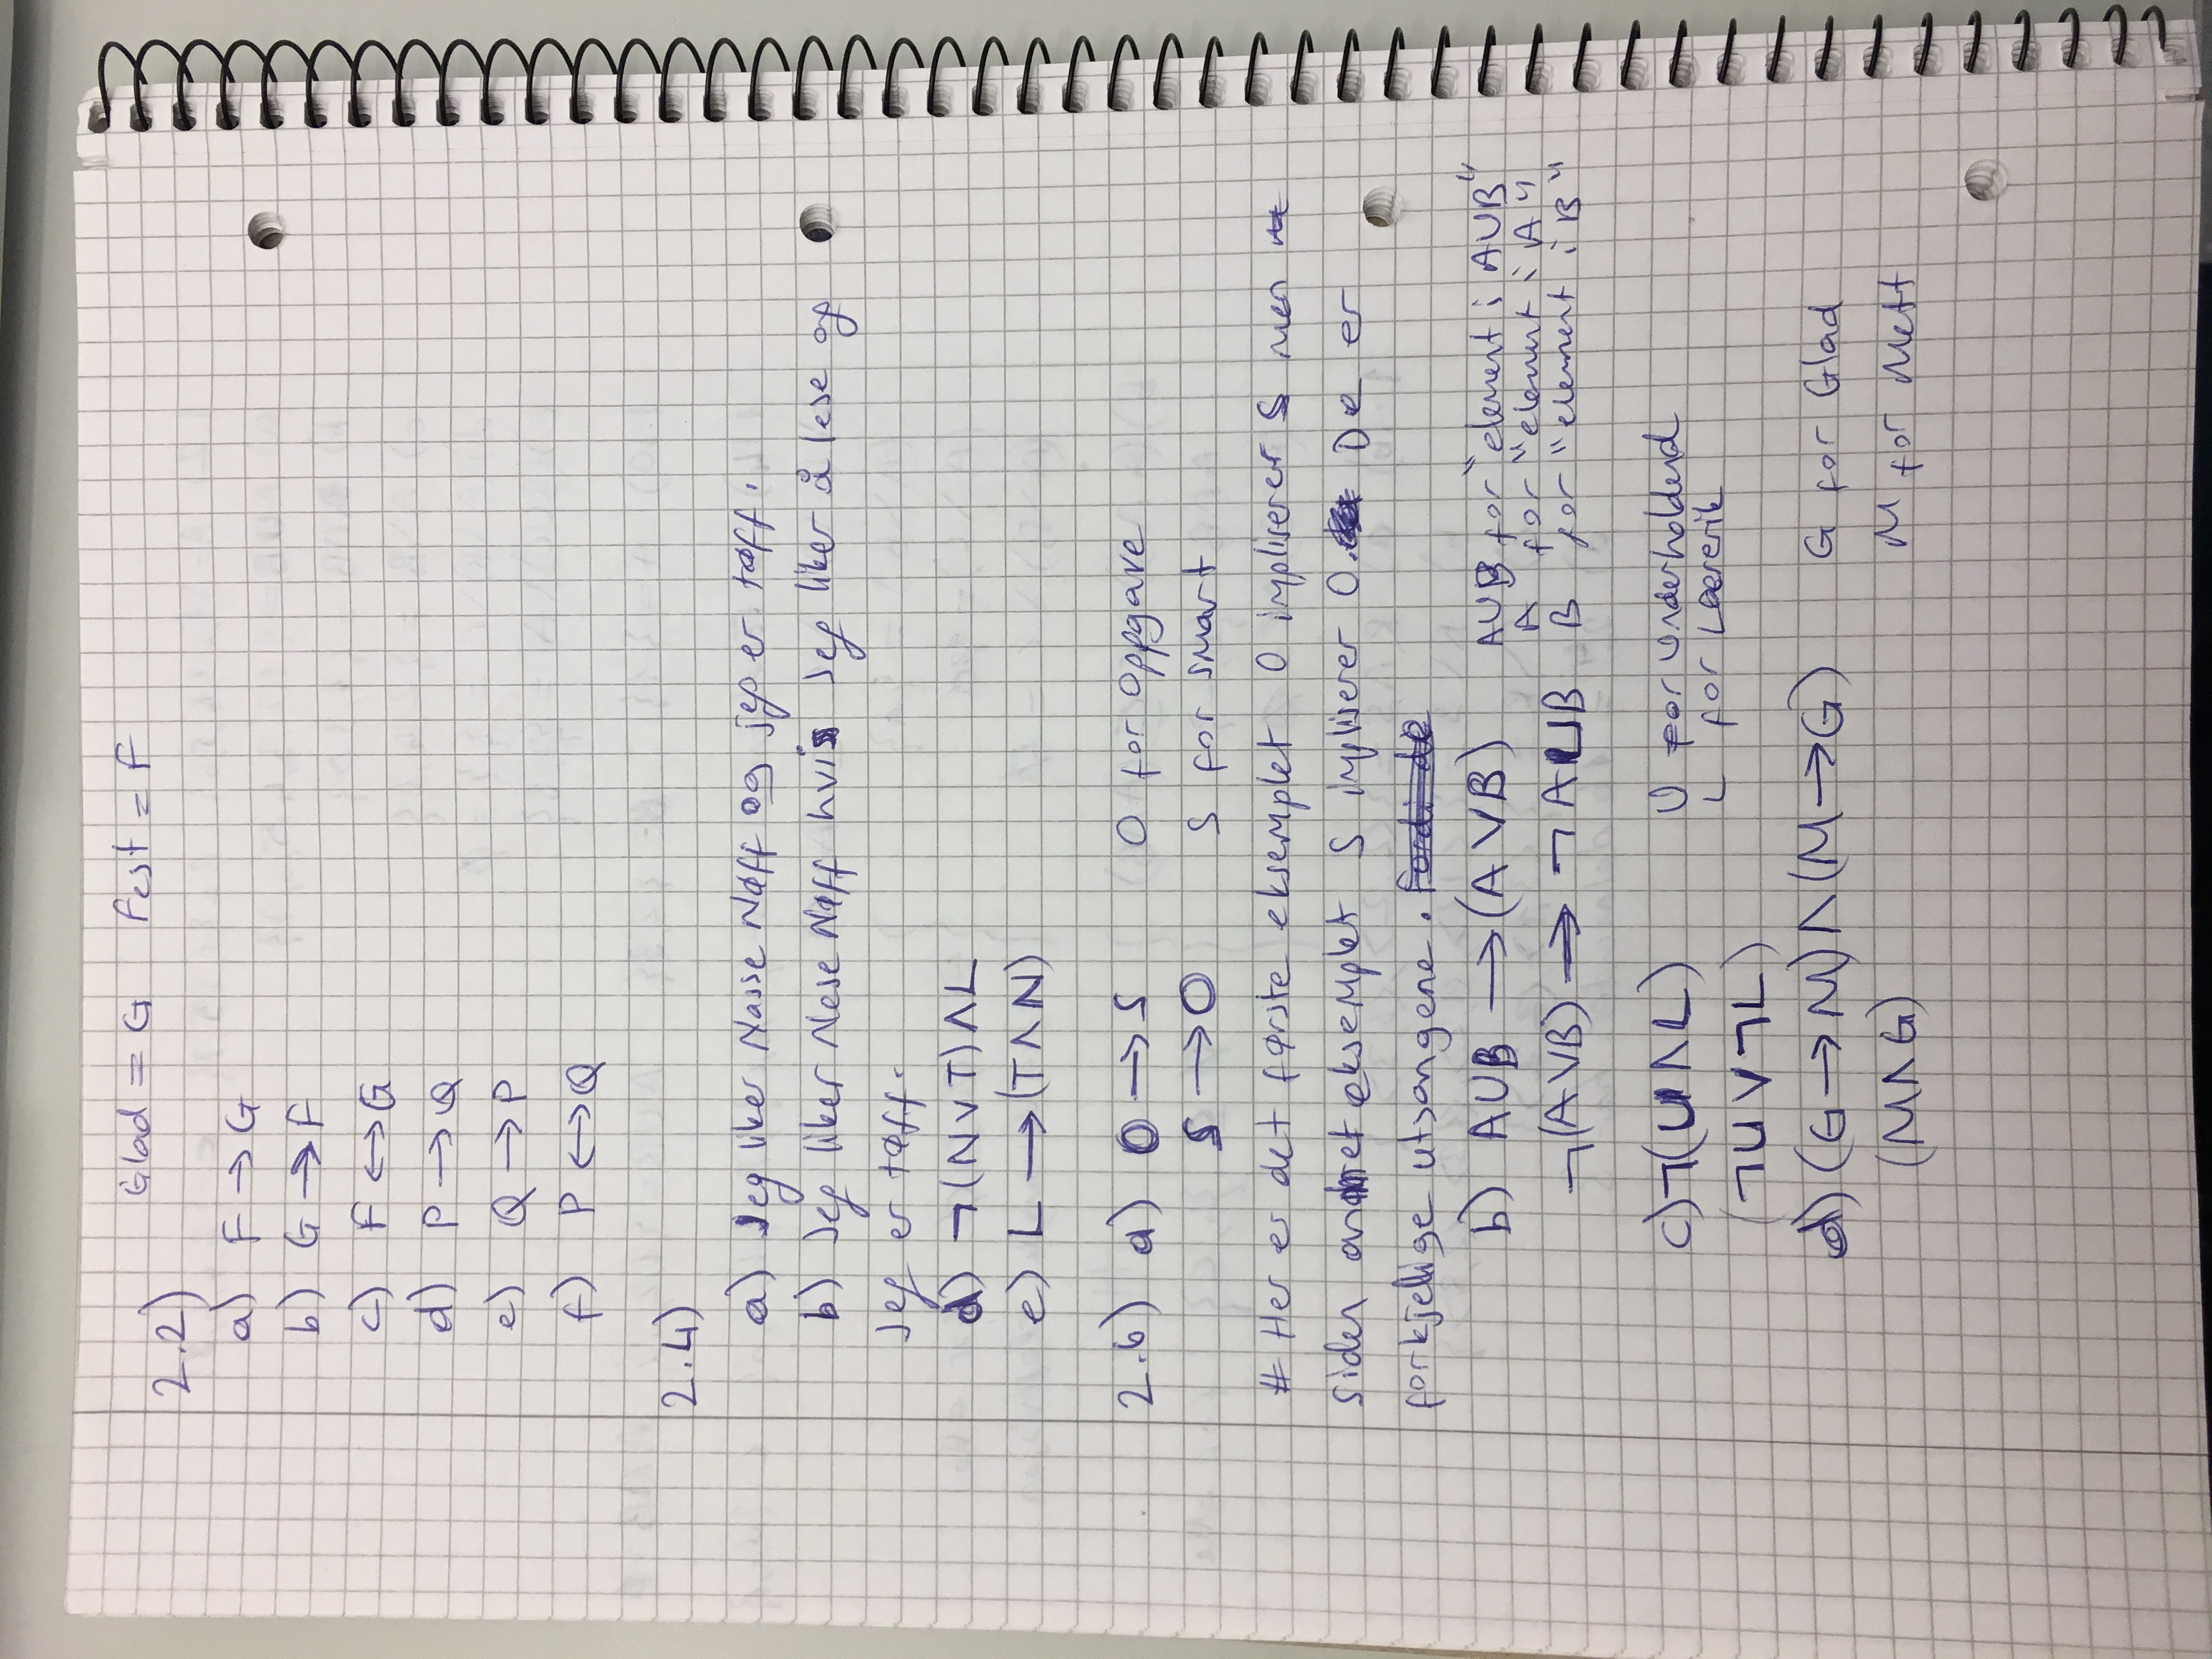 Glad = G Fest = F
2.2)
a) F → G
b) G → F
c) F ↔ G
d) P → Q
e) Q → P
f) P ↔ Q
2.4)
a) Jeg liker Nasse Nøff og jeg er tøff.
b) Jeg liker Nese Nøff hvis Jeg liker å lese og
Jeg er tøff.
d) ¬(N∨T)∧L
e) L → (T∧N)
2.6) a) O → S O for oppgave
S → O S for smart
# Her er det første eksemplet O impliserer S men
siden andret eksemplet S impliserer O. De er
forkjellige utsangene. Fordi de
b) A∪B → (A∨B) A∪B for "element i A∪B"
A for "element i A"
¬(A∨B) → ¬A∪B B for "element i B"
c) ¬(U∧L) U for Underholdend
L for Lærerik
(¬U∨¬L)
d) (G→M)∧(M→G) G for Glad
(M∧G) M for Mett